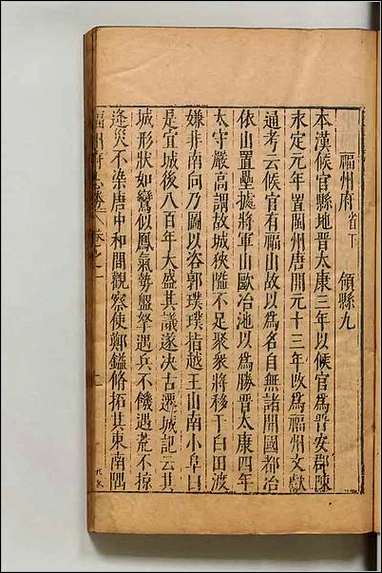 福州府省下　領縣九
本漢候官縣地晉太康三年以候官爲晉安郡陳
永定元年置閩州唐開元十三年改爲福州文獻
通考云候官有福山故以爲名自無諸開國都冶
依山置壘據將軍山歐冶池以爲勝晉太康四年
太守嚴高謂故城狹隘不足聚衆將移于白田渡
嫌非南向乃圖以咨郭璞璞指越王山南小阜曰
是宜城後八百年大盛其議遂决古遷城記云其
城形狀如鸞似鳳氣勢盤拏遇兵不饑遇荒不掠
逢災不染唐中和間觀察使鄭鎰脩拓其東南隅
福州府志勝 卷之一